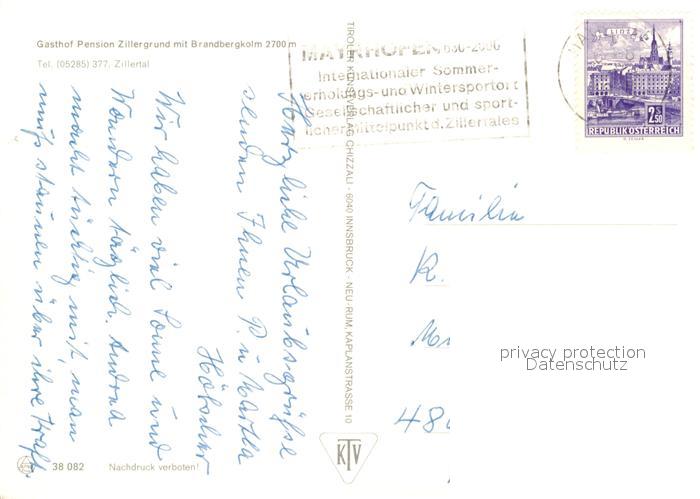 Gasthof Pension Zillergrund mit Brandbergkolm 2700 m
Tel. (05285) 377, Zillertal
Herzliche Urlaubsgrüße
senden Ihnen P. u Martha
Hölscher
Wir haben viel Sonne und
Wandern täglich. Andrea
macht tüchtig mit, man
muß staunen über ihre Kraft.
38 082 Nachdruck verboten!
TIROLER KUNSTVERLAG CHIZZALI · 6040 INNSBRUCK · NEU-RUM, KAPLANSTRASSE 10
KTV
MAYRHOFEN, 630-2000
Internationaler Sommer-
erholungs- und Wintersportort
Gesellschaftlicher und sport-
licher Mittelpunkt d. Zillertales
LINZ
2.50
REPUBLIK ÖSTERREICH
Familie
K.
48
privacy protection
Datenschutz